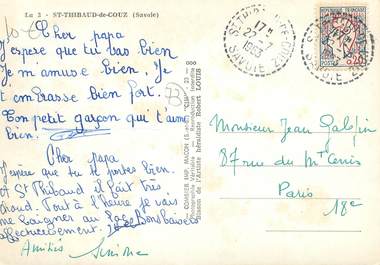 La 2 - ST-THIBAUD-de-COUZ (Savoie)
Cher papa
j'espere que tu vas bien
Je m'amuse bien. Je
t'embrasse bien fort.
Ton petit garçon qui t'aime
bien.
Cher papa
J'espère que tu te portes bien.
A St Thibaud il fait très
chaud. Tout à l'heure je vais
me baigner au
affectueusement.
Amitiés
COMBIER IMP. MACON
Photographie Véritable - Reproduction Interdite
Blason de l'Artiste héraldiste Robert LOUIS
17 H
27 - 7
1963
SAVOIE
SAVOIE
POSTES
0,20
Monsieur Jean
87 rue du Mt Cenis
Paris
18e